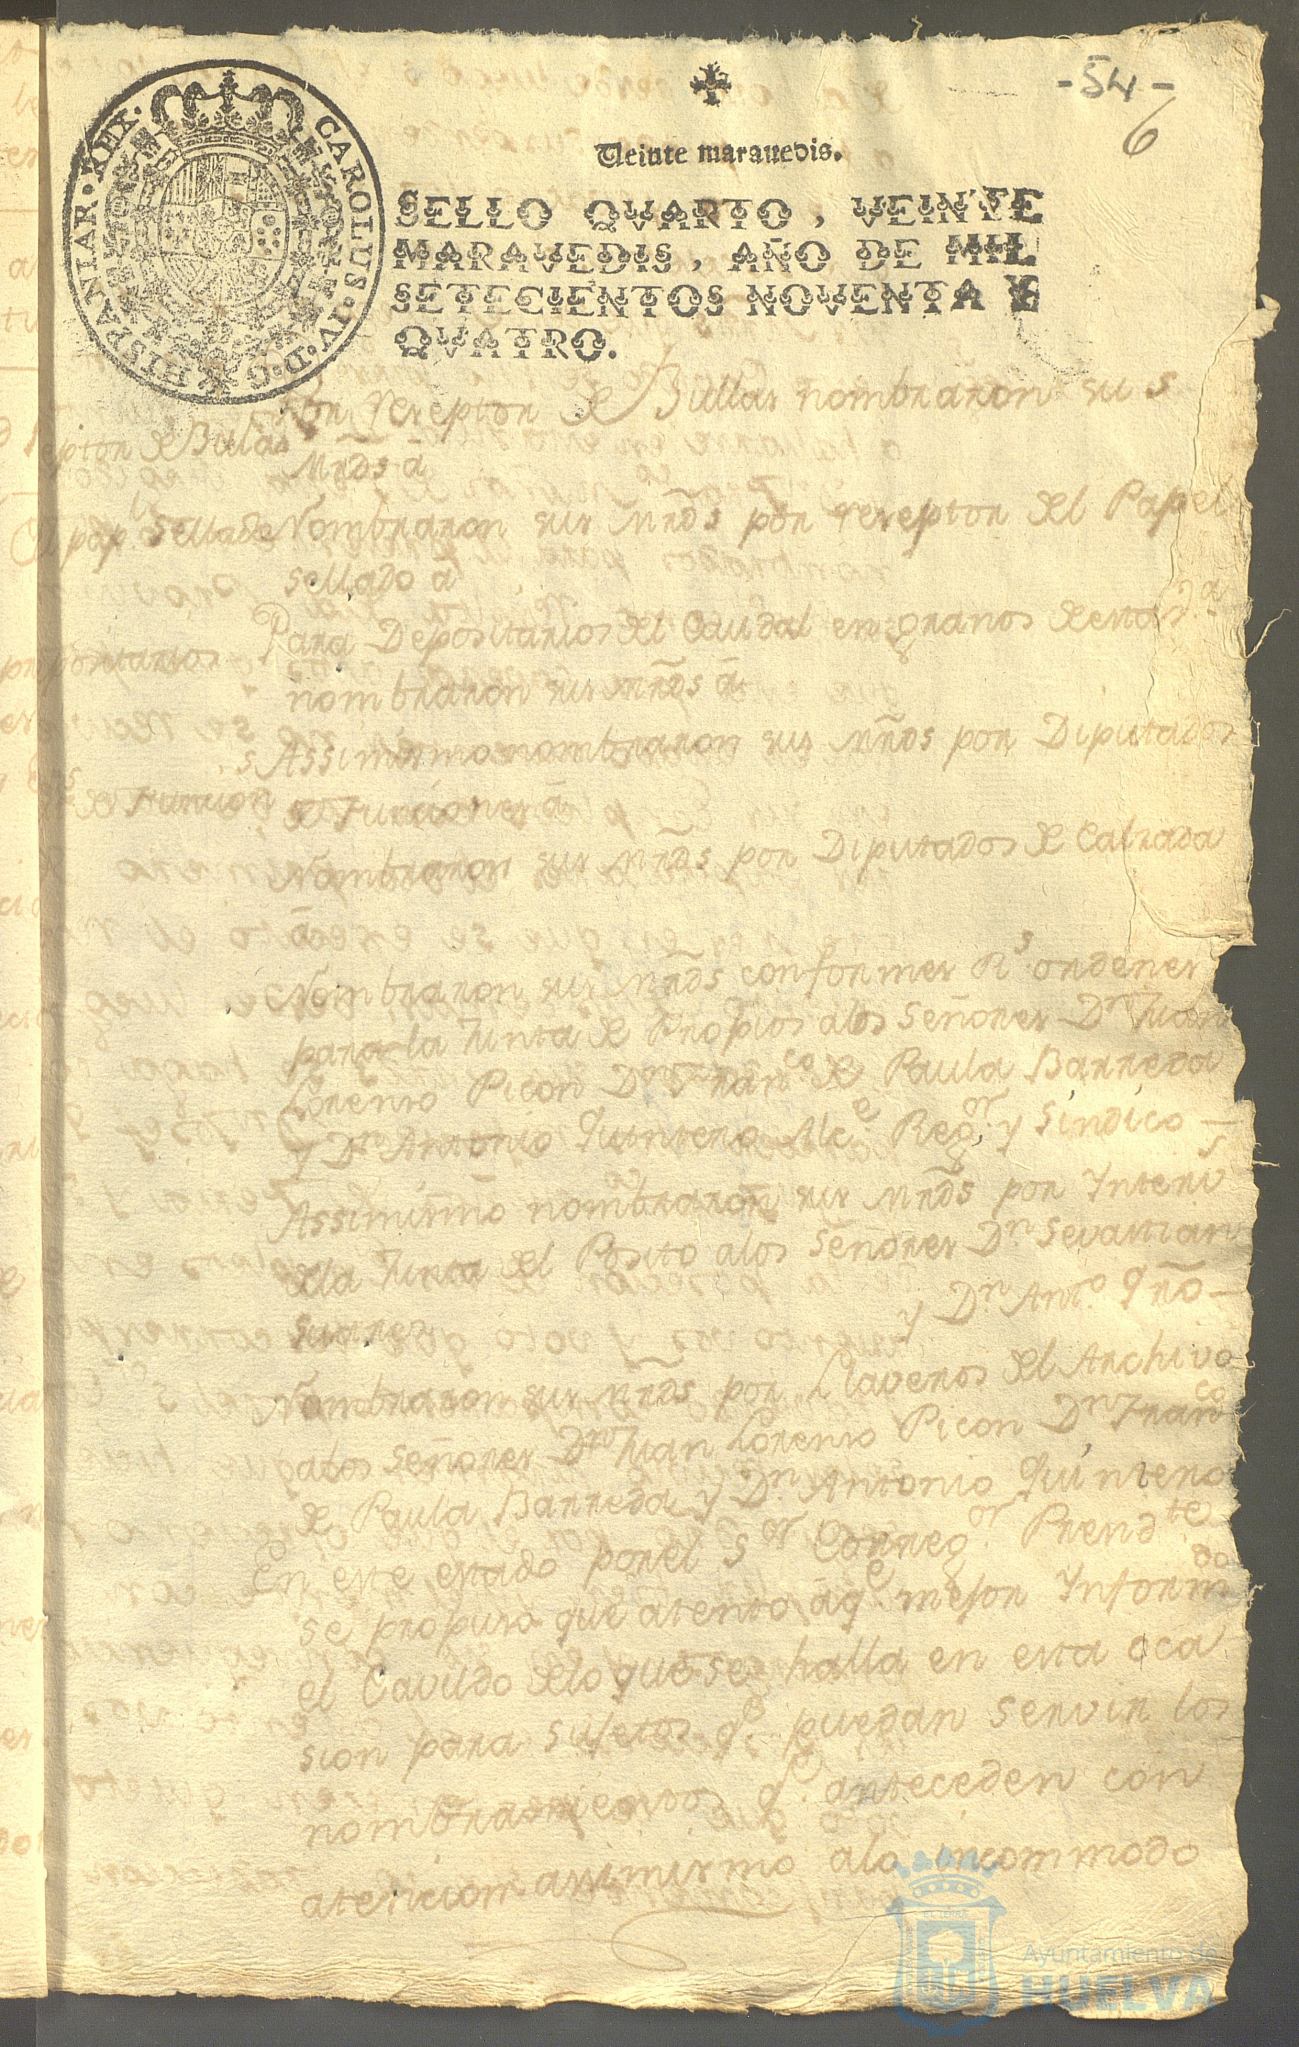 -54-
6
HISPANIAR·REX· CAROLUS·IV·D·G
Veinte marauedis.
SELLO QVARTO, VEINTE
MARAVEDIS, AÑO DE MIL
SETECIENTOS NOVENTA Y
QVATRO.
Por rezeptor de Bullas nombraron sus
eptor de Bulas
Mrds â
papl sellado
Nombraron sus Mrds por rezeptor del Papel
sellado â
Para Depositarios del Caudal en granos de esta
positarios
nombraron sus Mrds â
Assimismo nombraron sus Mrds por Diputados
de Funcion
de Funciones â
Nombraron sus Mrds por Diputados de Calzada
â
Nombraron sus Mrds conformes Rs ordenes
para la Junta de Propios alos Señores Dn Juan
Lorenzo Picon Dn Franco de Paula Barreda
y Dn Antonio Quintero Alce Regor y Sindico
Assimismo nombraron sus Mrds por Interv
dela Junta del Posito alos Señores Dn Sevastian
Suarez y Dn Anto Qño
Nombraron sus Mrds por Llaveros del Archivo
alos Señores Dn Juan Lorenzo Picon Dn Franco
de Paula Barreda y Dn Antonio Quintero
En este estado por el Sor Corregor Presdte
se propuso que atento âqe mejor Informdo
el Cavildo delo que se halla en esta oca
sion para sujetos qe puedan servir los
nombramientos qe anteceden con
atencion assimismo alo incommodo
Ayuntamiento de
HUELVA